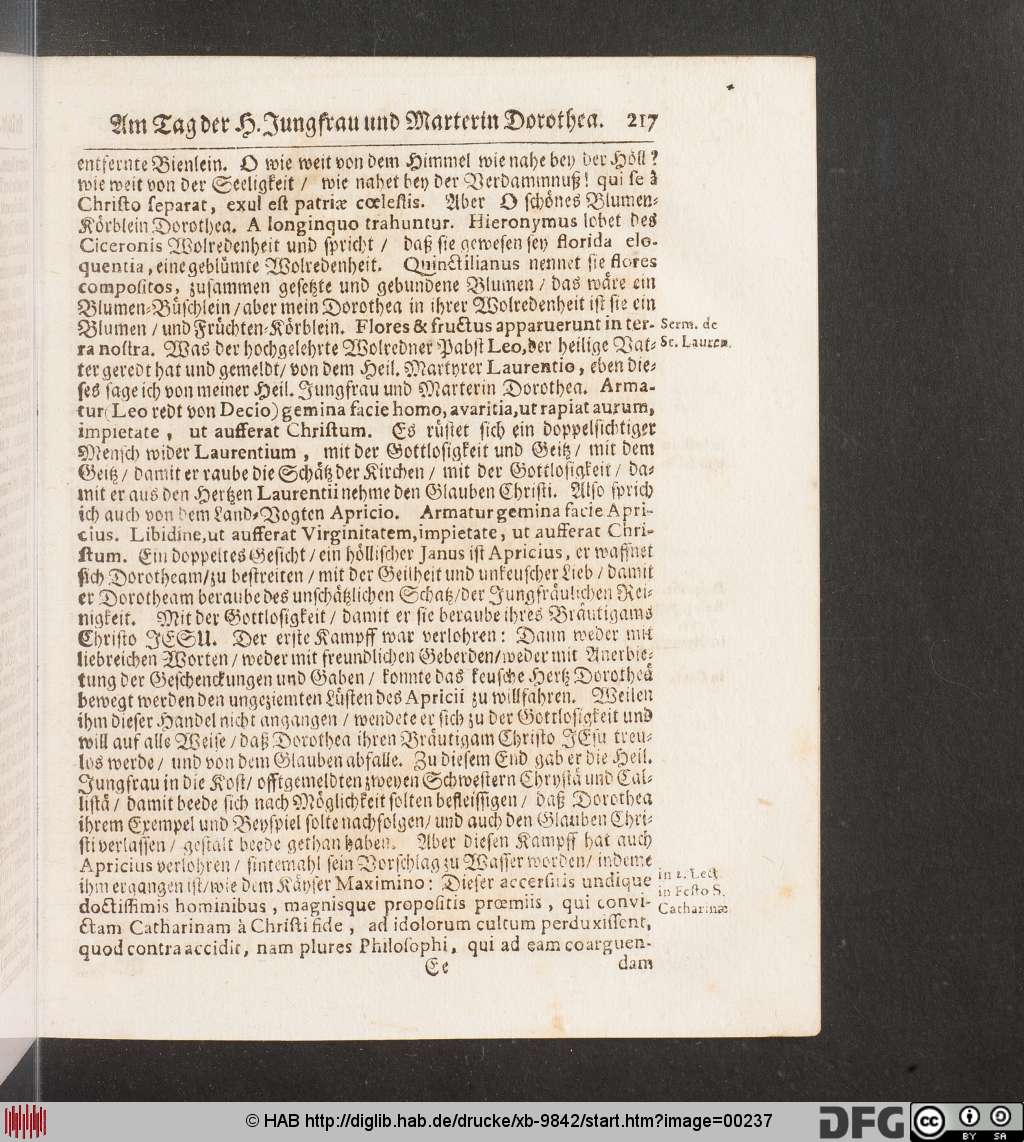 Am Tag der H. Jungfrau und Marterin Dorothea. 217
entfernte Bienlein. O wie weit von dem Himmel wie nahe bey der Höll?
wie weit von der Seeligkeit / wie nahet bey der Verdammnuß! qui se à
Christo separat, exul est patriæ cœlestis. Aber O schönes Blumen-
Körblein Dorothea. A longinquo trahuntur. Hieronymus lobet des
Ciceronis Wolredenheit und spricht / daß sie gewesen sey florida elo-
quentia, eine geblümte Wolredenheit. Quinctilianus nennet sie flores
compositos, zusammen gesetzte und gebundene Blumen / das wäre ein
Blumen-Büschlein / aber mein Dorothea in ihrer Wolredenheit ist sie ein
Blumen / und Früchten-Körblein. Flores & fructus apparuerunt in ter-
ra nostra. Was der hochgelehrte Wolredner Pabst Leo, der heilige Vat-
ter geredt hat und gemeldt / von dem Heil. Martyrer Laurentio, eben die-
ses sage ich von meiner Heil. Jungfrau und Marterin Dorothea. Arma-
tur (Leo redt von Decio) gemina facie homo, avaritia, ut rapiat aurum,
impietate, ut aufferat Christum. Es rüstet sich ein doppelsichtiger
Mensch wider Laurentium, mit der Gottlosigkeit und Geitz / mit dem
Geitz / damit er raube die Schätz der Kirchen / mit der Gottlosigkeit / da-
mit er aus den Hertzen Laurentii nehme den Glauben Christi. Also sprich
ich auch von dem Land-Vogten Apricio. Armatur gemina facie Apri-
cius. Libidine, ut aufferat Virginitatem, impietate, ut aufferat Chri-
stum. Ein doppeltes Gesicht / ein höllischer Janus ist Apricius, er waffnet
sich Dorotheam / zu bestreiten / mit der Geilheit und unkeuscher Lieb / damit
er Dorotheam beraube des unschätzlichen Schatz / der Jungfräulichen Rei-
nigkeit. Mit der Gottlosigkeit / damit er sie beraube ihres Bräutigams
Christo JESU. Der erste Kampff war verlohren: Dann weder mit
liebreichen Worten / weder mit freundlichen Geberden / weder mit Anerbie-
tung der Geschenckungen und Gaben / konnte das keusche Hertz Dorotheä
bewegt werden den ungeziemten Lüsten des Apricii zu willfahren. Weilen
ihm dieser Handel nicht angangen / wendete er sich zu der Gottlosigkeit und
will auf alle Weise / daß Dorothea ihren Bräutigam Christo JEsu treu-
los werde / und von dem Glauben abfalle. Zu diesem End gab er die Heil.
Jungfrau in die Kost / offtgemeldten zweyen Schwestern Chrystä und Cal-
listä / damit beede sich nach Möglichkeit solten befleissigen / daß Dorothea
ihrem Exempel und Beyspiel solte nachfolgen / und auch den Glauben Chri-
sti verlassen / gestalt beede gethan haben. Aber diesen Kampff hat auch
Apricius verlohren / sintemahl sein Vorschlag zu Wasser worden / indeme
ihm ergangen ist / wie dem Käyser Maximino: Dieser accersitis undique
doctissimis hominibus, magnisque propositis prœmiis, qui convi-
ctam Catharinam à Christi fide, ad idolorum cultum perduxissent,
quod contra accidit, nam plures Philosophi, qui ad eam coarguen-
Ee dam
Serm. de
St. Lauren.
in 2. Lect.
in Festo S.
Catharinæ
© HAB http://diglib.hab.de/drucke/xb-9842/start.htm?image=00237
DFG
cc BY SA